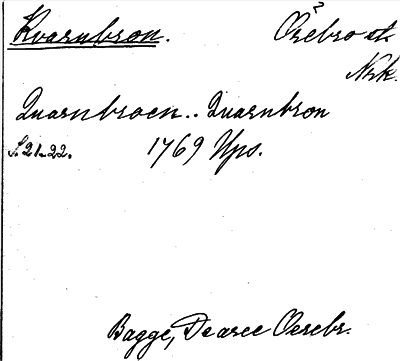 Kvarnbron. Örebro st.
Nrk.
Quarnbroen.. Quarnbron
S. 21-22. 1769 Ups.
Bagge, De area Oerebr.